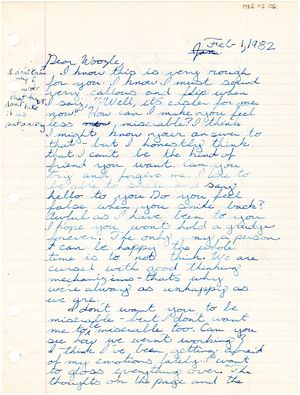 1982.02.02.
Jan. Feb 1, 1982
Dear Woozle,
I know this is very rough
for you. I know I must sound
very callous and flip when
I say "Well, it's easier for me
now." How can I make you feel
less miserable? I think
I might know your answer to
that but I honestly think
that I can't be the kind of
friend you want. Can you
try and forgive me. I like to
be able to smile and say
hello to you. Do you feel
false when you smile back?
Awful as I have been to you
I hope you won't hold a grudge
forever. The only way a person
can be happy the whole
time is to not think. We are
cursed with good thinking
mechanizims - that's why
we're always as unhappy as
we are.
I don't want you to be
miserable - but I don't want
me to be miserable too. Can you
see how we weren't working?
I think I've been getting afraid
of my emotions lately. I want
to gloss everything over. The
thoughts on the page and the
I don't
my
word
that
don't
it as
patronizing